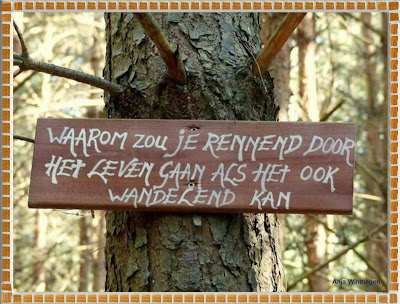 WAAROM ZOU JE RENNEND DOOR
HET LEVEN GAAN ALS HET OOK
WANDELEND KAN
Anja Winthagen